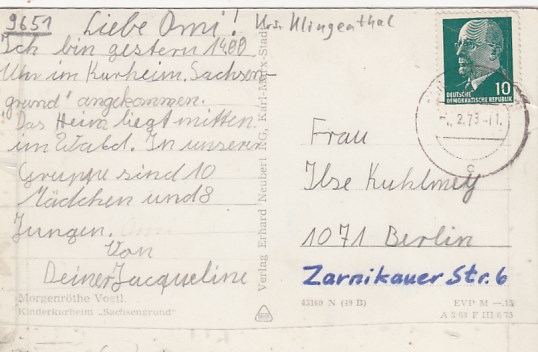 9651
Liebe Omi!
Krs. Klingenthal
Ich bin gestern 1400
Uhr im Kurheim „Sachsen-
grund" angekommen.
Das Heim liegt mitten
im Wald. In unserer
Gruppe sind 10
Mädchen und 8
Jungen.
Von
Deiner Jacqueline
Morgenröthe Vogtl.
Kinderkurheim „Sachsengrund"
Verlag Erhard Neubert KG, Karl-Marx-Stadt
10
DEUTSCHE
DEMOKRATISCHE REPUBLIK
2.73
c
Frau
Ilse Kuhlmey
1071 Berlin
Zarnikauer Str. 6
EVP M